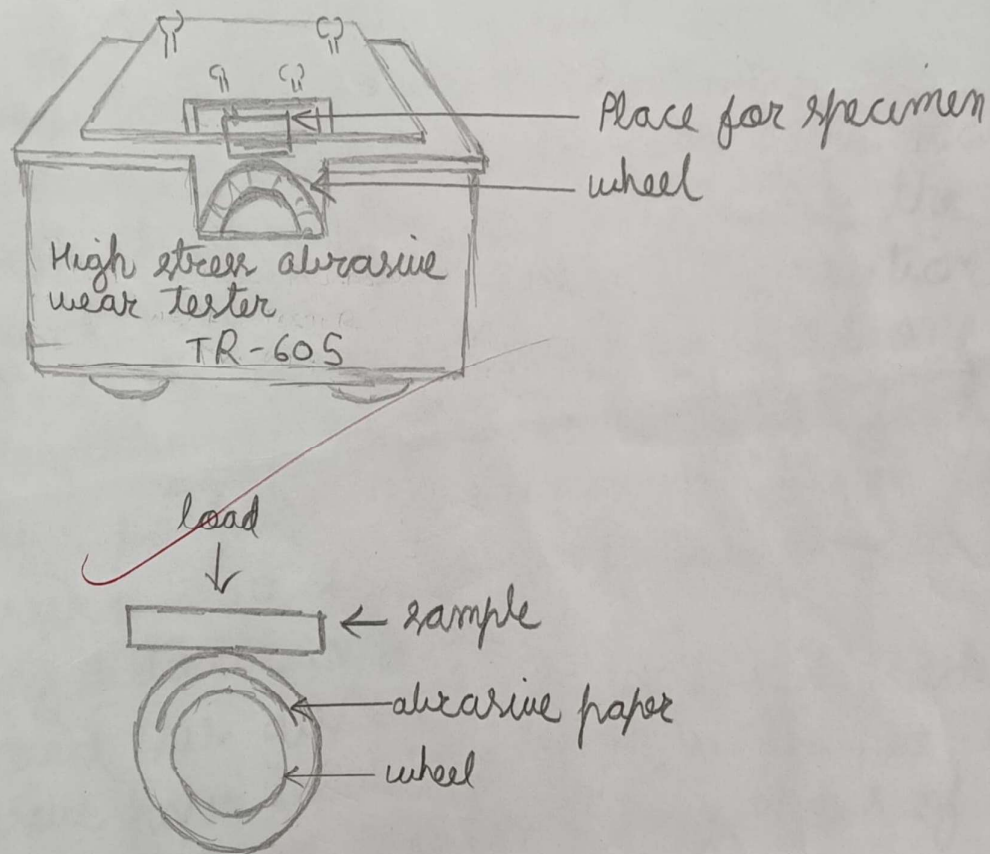 Place for specimen
wheel
High stress abrasive
wear tester
TR-605
load
sample
abrasive paper
wheel